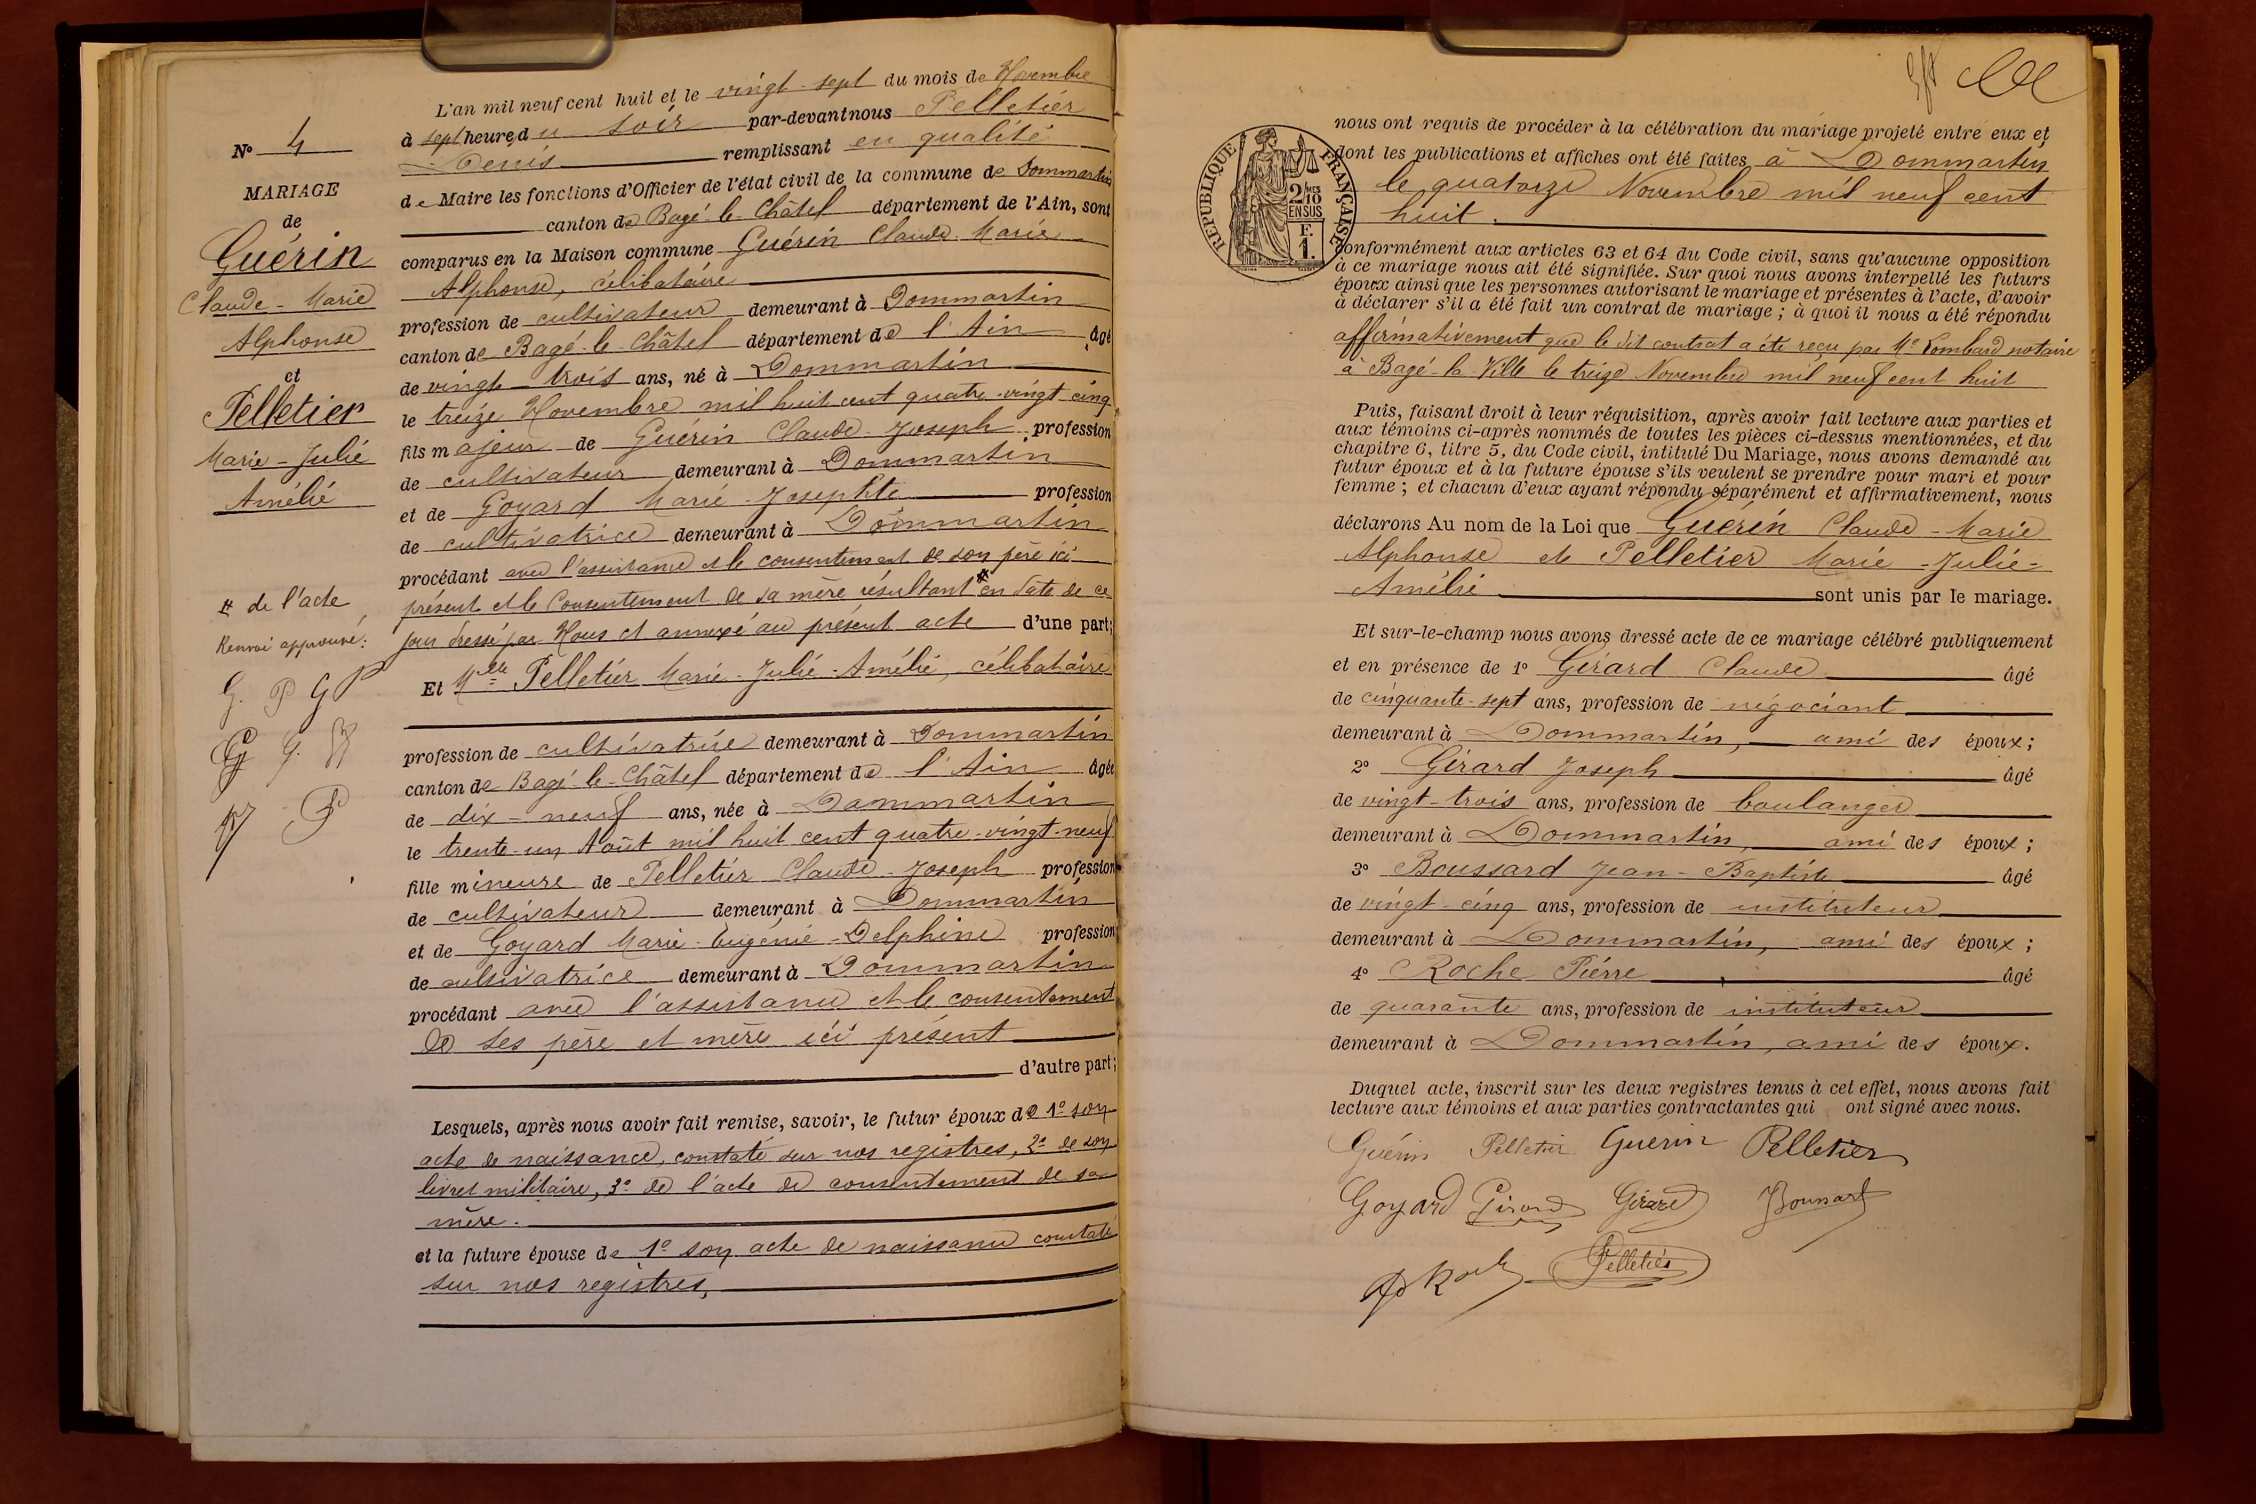 N° 4
MARIAGE
de
Guérin
Claude-Marie
Alphonse
et
Pelletier
Marie-Julie
Amélie
# de l'acte
Renvoi approuvé:
G. P G P
L'an mil neuf cent huit et le vingt-sept du mois de Novembre
à sept heures du soir par-devant nous Pelletier
Denis remplissant en qualité
de Maire les fonctions d'Officier de l'état civil de la commune de Dommartin
canton de Bagé-le-Châtel département de l'Ain, sont
comparus en la Maison commune Guérin Claude-Marie
Alphonse, célibataire
profession de cultivateur demeurant à Dommartin
canton de Bagé-le-Châtel département de l'Ain âgé
de vingt-trois ans, né à Dommartin
le treize Novembre mil huit cent quatre-vingt-cinq
fils majeur de Guérin Claude-Joseph profession
de cultivateur demeurant à Dommartin
et de Goyard Marie-Josephte profession
de cultivatrice demeurant à Dommartin
procédant avec l'assistance et le consentement de son père ici
présent et le consentement de sa mère résultant # en date de ce
jour dressé par Nous et annexé au présent acte d'une part;
Et Mlle Pelletier Marie-Julie-Amélie, célibataire
profession de cultivatrice demeurant à Dommartin
canton de Bagé-le-Châtel département de l'Ain âgée
de dix-neuf ans, née à Dommartin
le trente-un Août mil huit cent quatre-vingt-neuf
fille mineure de Pelletier Claude-Joseph profession
de cultivateur demeurant à Dommartin
et de Goyard Marie-Eugénie-Delphine profession
de cultivatrice demeurant à Dommartin
procédant avec l'assistance et le consentement
de ses père et mère ici présent
d'autre part;
Lesquels, après nous avoir fait remise, savoir, le futur époux de 1° son
acte de naissance, constaté sur nos registres, 2° de son
livret militaire, 3° de l'acte de consentement de sa
mère.
et la future épouse de 1° son acte de naissance constaté
sur nos registres,
RÉPUBLIQUE FRANÇAISE
2/10 MES
EN SUS
F.
1.
nous ont requis de procéder à la célébration du mariage projeté entre eux et
dont les publications et affiches ont été faites à Dommartin
le quatorze Novembre mil neuf cent
huit.
conformément aux articles 63 et 64 du Code civil, sans qu'aucune opposition
à ce mariage nous ait été signifiée. Sur quoi nous avons interpellé les futurs
époux ainsi que les personnes autorisant le mariage et présentes à l'acte, d'avoir
à déclarer s'il a été fait un contrat de mariage; à quoi il nous a été répondu
affirmativement que le dit contrat a été reçu par Me Lombard notaire
à Bagé-la-Ville le treize Novembre mil neuf cent huit
Puis, faisant droit à leur réquisition, après avoir fait lecture aux parties et
aux témoins ci-après nommés de toutes les pièces ci-dessus mentionnées, et du
chapitre 6, titre 5, du Code civil, intitulé Du Mariage, nous avons demandé au
futur époux et à la future épouse s'ils veulent se prendre pour mari et pour
femme; et chacun d'eux ayant répondu séparément et affirmativement, nous
déclarons Au nom de la Loi que Guérin Claude-Marie
Alphonse et Pelletier Marie-Julie-
Amélie sont unis par le mariage.
Et sur-le-champ nous avons dressé acte de ce mariage célébré publiquement
et en présence de 1° Gérard Claude âgé
de cinquante-sept ans, profession de négociant
demeurant à Dommartin, ami des époux;
2° Gérard Joseph âgé
de vingt-trois ans, profession de boulanger
demeurant à Dommartin, ami des époux;
3° Boussard Jean-Baptiste âgé
de vingt-cinq ans, profession de instituteur
demeurant à Dommartin, ami des époux;
4° Roche Piérre âgé
de quarante ans, profession de instituteur
demeurant à Dommartin, ami des époux.
Duquel acte, inscrit sur les deux registres tenus à cet effet, nous avons fait
lecture aux témoins et aux parties contractantes qui ont signé avec nous.
Guérin Pelletier Guerin Pelletier
Goyard Girard
Pelletier